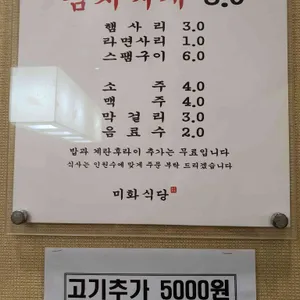 햄 사 리 3.0
라면사리 1.0
스팸구이 6.0
소 주 4.0
맥 주 4.0
막 걸 리 3.0
음 료 수 2.0
밥과 계란후라이 추가는 무료입니다
식사는 인원수에 맞게 주문 부탁 드리겠습니다
미화식당
고기추가 5000원